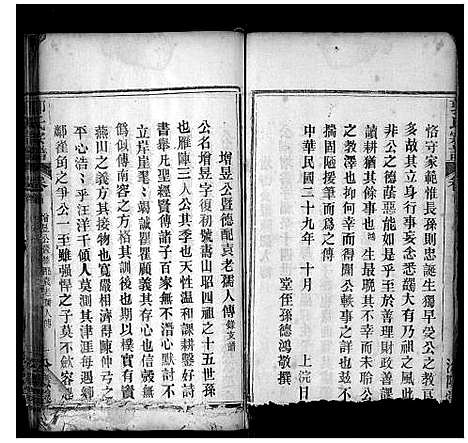 恪守家範惟長孫則忠誕生獨早受公之教育
多故其立身行事妄念悉蠲大有乃祖之風此
非公之德蔭惡能如是乎至於善理財政善談
讀耕猶其餘事也鴻生最晚其不幸而未聆公
之教澤也亦幸而得聞公軼事之詳也玆不
揣固陋援筆而爲之傳
中華民國三十九年　十月　上浣日
堂任孫德鴻敬撰
增昱公暨德配袁老孺人傳
公名增昱字復初號嵩山昭四祖之十五世孫
也雁陣三人公其季也天性温和課餘鑿好詩
書舉凡聖經賢傳諸子百家無不潛心默討不
立岸崖不竭誠瞿瞿顧義其存心也信殼無
僞似傳南容之方格其訓後也期以實有竇
燕山之義方其接物也寬嚴相濟得陳仲弓之
平心浩浩乎汪洋千傾人莫測其津涯每遇鄉
鄰雀角之爭公一至雖强悍之子莫不歛容忍
增昱公袁老孺人傳